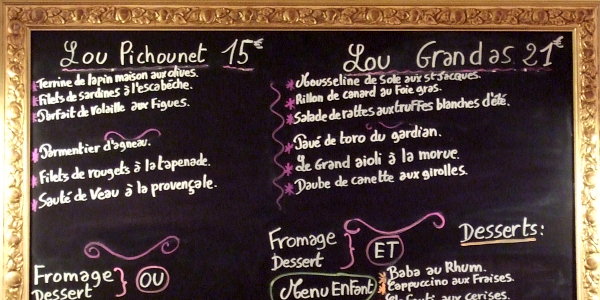 Lou Pichounet 15€
Terrine de lapin maison aux olives.
Filets de sardines à l'escabèche.
Parfait de Volaille aux Figues.
Parmentier d'agneau.
Filets de rougets à la tapenade.
Sauté de Veau à la provençale.
Fromage
Dessert
OU
Lou Grandas 21€
Mousseline de Sole aux St Jacques.
Rillon de canard au Foie gras.
Salade de rattes aux truffes blanches d'été.
Pavé de toro du gardian.
Le Grand aïoli à la morue.
Daube de canette aux girolles.
Fromage
Dessert
ET
Menu Enfant
Desserts:
Baba au Rhum.
Cappuccino aux Fraises.
aux cerises.